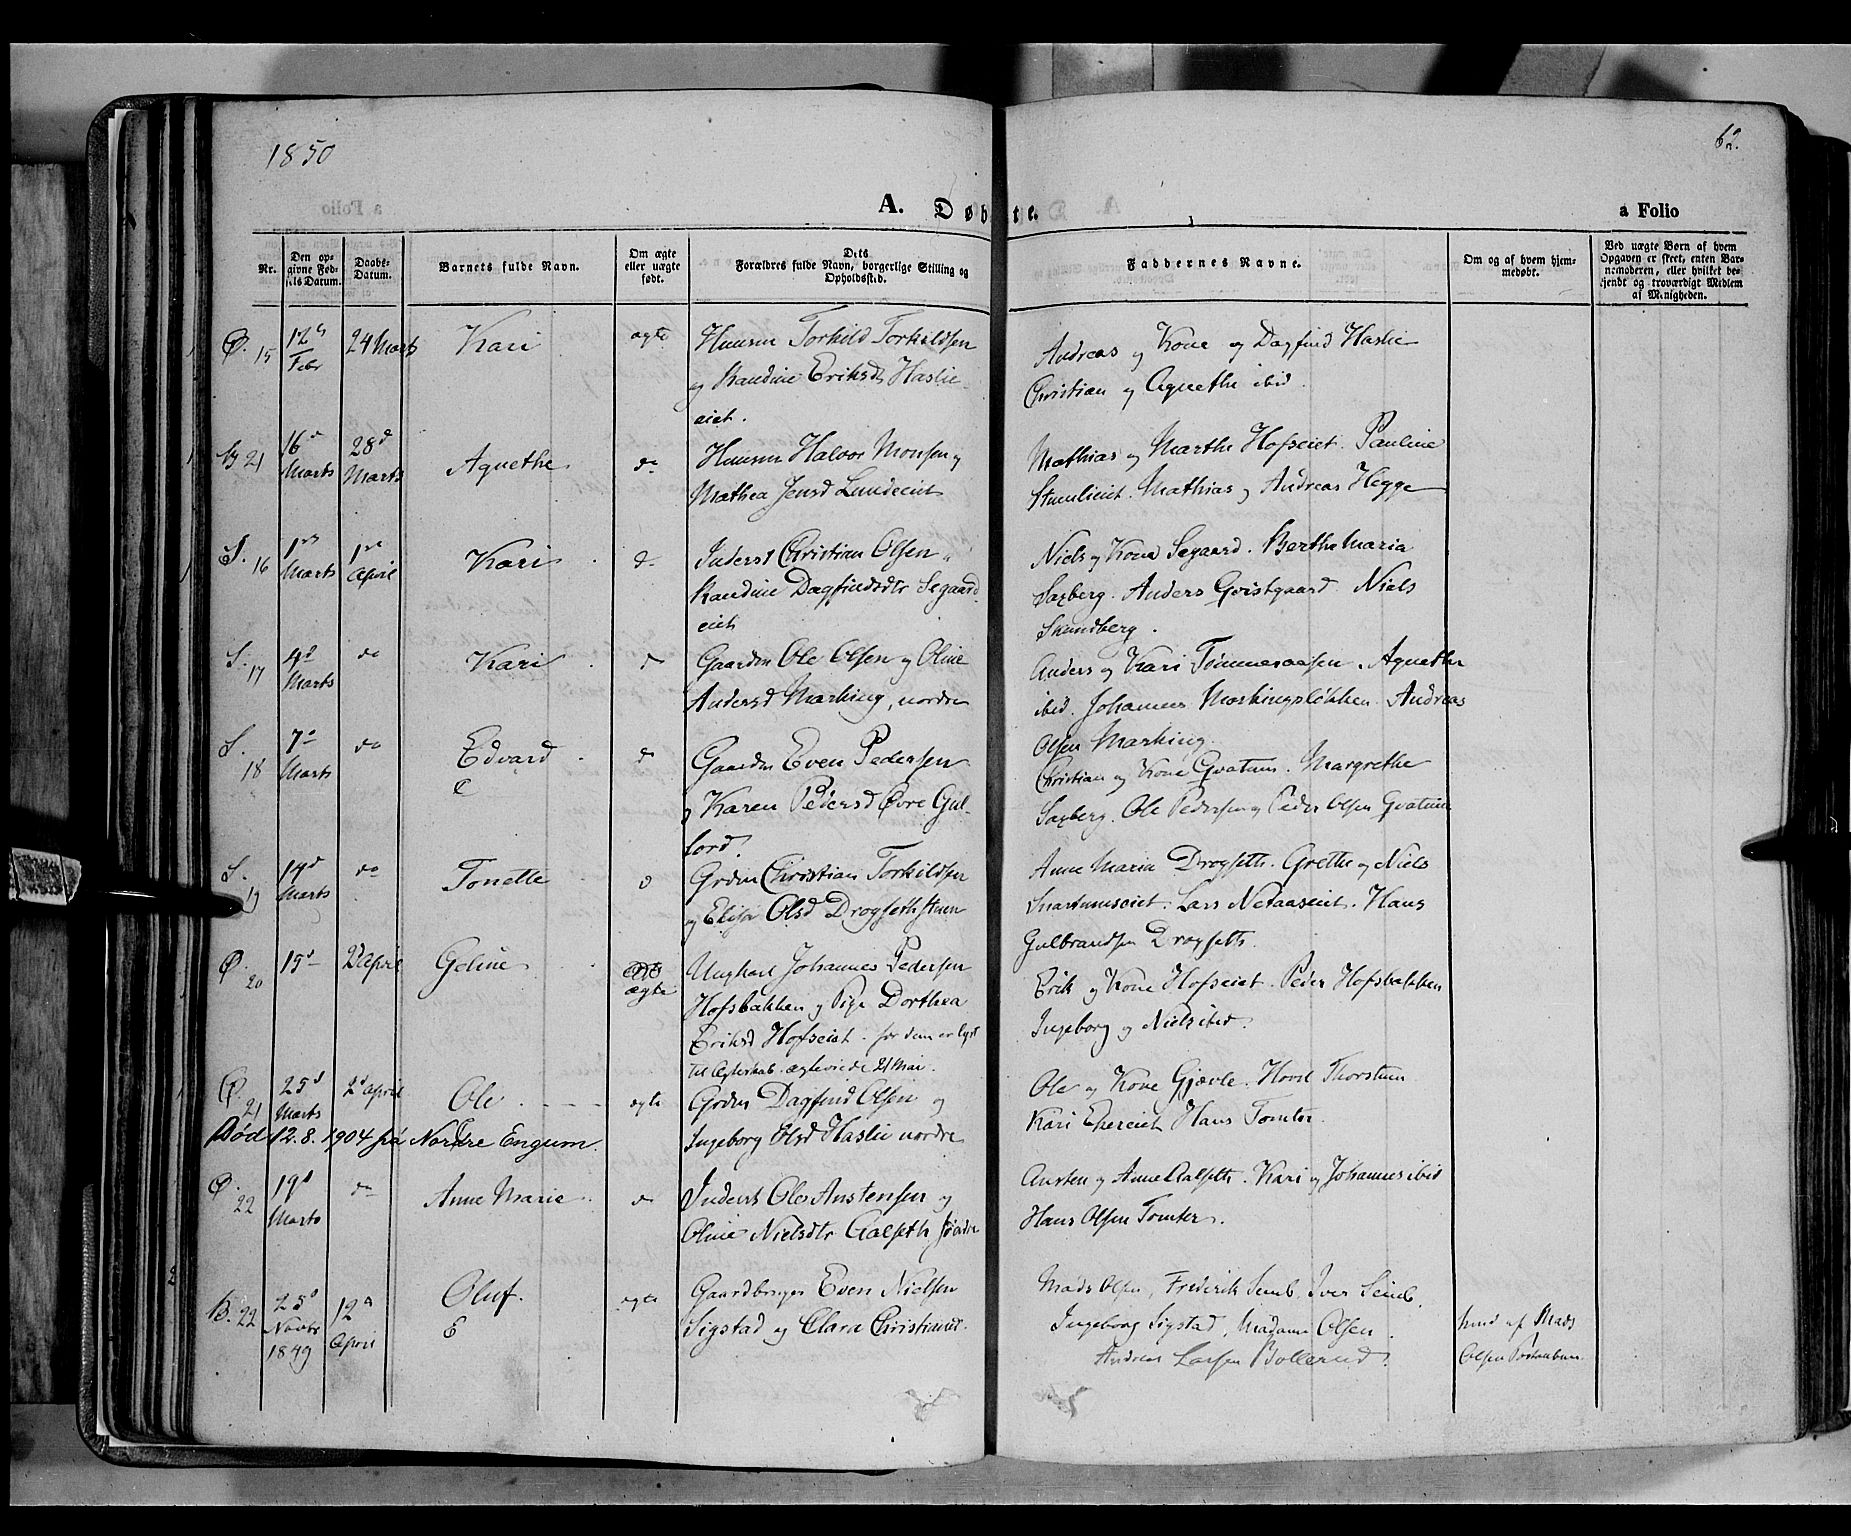 1850
62.
A. Døbte.
a Folio
Nr.
Den opgivne Fødsels Datum.
Daabs-Datum.
Barnets fulde Navn.
Om ægte eller uægte født.
Dets Forældres fulde Navn, borgerlige Stilling og Opholdssted.
Faddernes Navne.
Om og af hvem hjemmedøbt.
Ved uægte Børn af hvem Opgaven er skeet, enten Barnemoderen, eller hvilket bekjendt og troværdigt Medlem af Menigheden.
Ø. 15 12te Febr 24 Marts Kari ægte Huusm Torkild Torkildsen
og Randine Eriksdt Haslie-
eiet.
Andreas og Kone og Dagfind Haslie
Christian og Agnethe ibid.
B 21 16d Marts 28d Marts Agnethe do Huusm Halvor Monsen og
Mathea Jensd Lundeeiet
Mathias og Marthe Hofseiet. Pauline
Stuenlieeiet. Mathias og Andreas Hegge
S. 16 1ste Marts 1ste April Kari do Inderst Christian Olsen
Randine Dagfindsdtr Segaard
eiet
Niels og Kone Segaard. Berthe Maria
Saxberg. Anders Qvistgaard Niels
Skundberg.
S. 17 4d Marts do Kari d Gaardm Ole Olsen og Oline
Andersd Marking, nordre
Anders og Kari Tømmeraasen. Agnethe
ibid. Johannes Markingsløkken. Andreas
Olsen Marking.
S. 18 7d Marts do Edvard d Gaardm Even Pedersen
E
og Karen Pedersd Øvre Gul-
lord.
Christian og Kone Qvatum. Margrethe
Saxberg. Ole Pedersen og Peder Olsen Qvatum
S. 19 14d Marts do Tonette d Grdm Christian Torkildsen
og Elise Olsd Drogseth stuen
Anne Maria Drogseth. Grethe og Niels
Snartumseiet. Lars Netaaseiet. Hans
Gulbrandsen Drogseth.
Ø. 20 15d 2d April Geline ægte Ungkarl Johannes Pedersen
Hofsbakken og Pige Dorthea
Eriksd Hofseiet. for dem er lyst
til Ægteskab. ægteviede 21 Mai.
Erik og Kone Hofseiet. Peder Hofsbakken
Ingeborg og Niels ibid.
Ø. 21 25d Marts 2d April Ole ægte Grdm Dagfind Olsen og
Død 12.8.1904 på Nordre Engum.
Ingeborg Olsd Haslie nordre
Ole og Kone Gjævle. Thorsteen
Kari Hans Tomter.
Ø. 22 19d Marts do Anne Marie d Inderst Ole Anstensen og
Oline Nielsdtr Aalseth søndre
Austen og Anne Aalseth. Kari og Johannes ibid
Hans Olsen Tomter.
B. 22 25d Novbr 1849 12te April Oluf. ægte Gaardbruger Even Nielsen
E
Sigstad og Clara Christiansd.
Mads Olsen, Frederik Semb, Iver Semb,
Ingeborg Sigstad, Madame Olsen
Andreas Larsen Bollerud.
hmd af Mads
Olsen